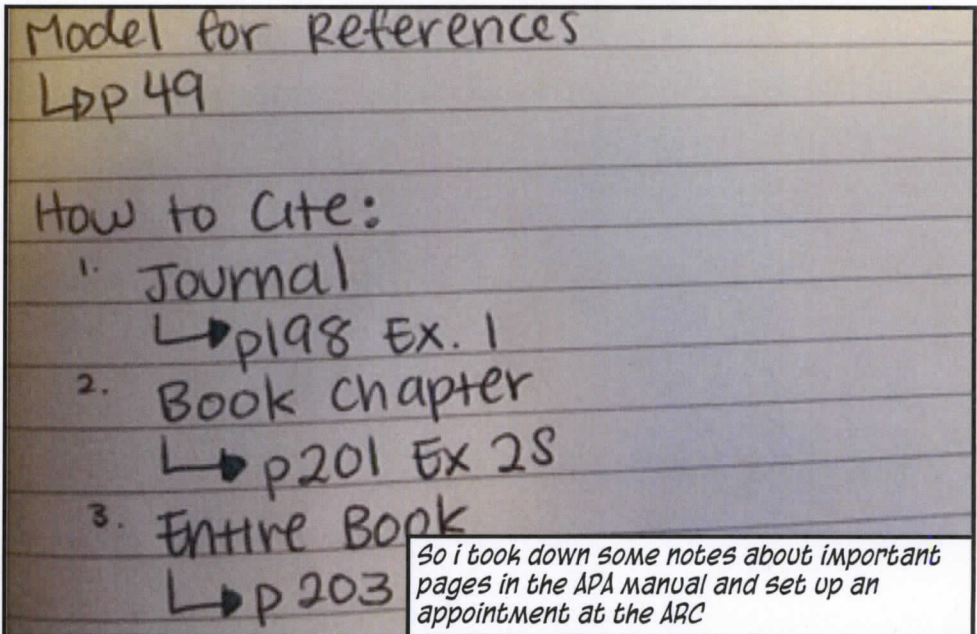 Model for References
↳p 49
How to Cite:
1. Journal
↳p198 Ex. 1
2. Book Chapter
↳p201 Ex 25
3. Entire Book
↳p 203
So i took down some notes about important
pages in the APA manual and set up an
appointment at the ARC